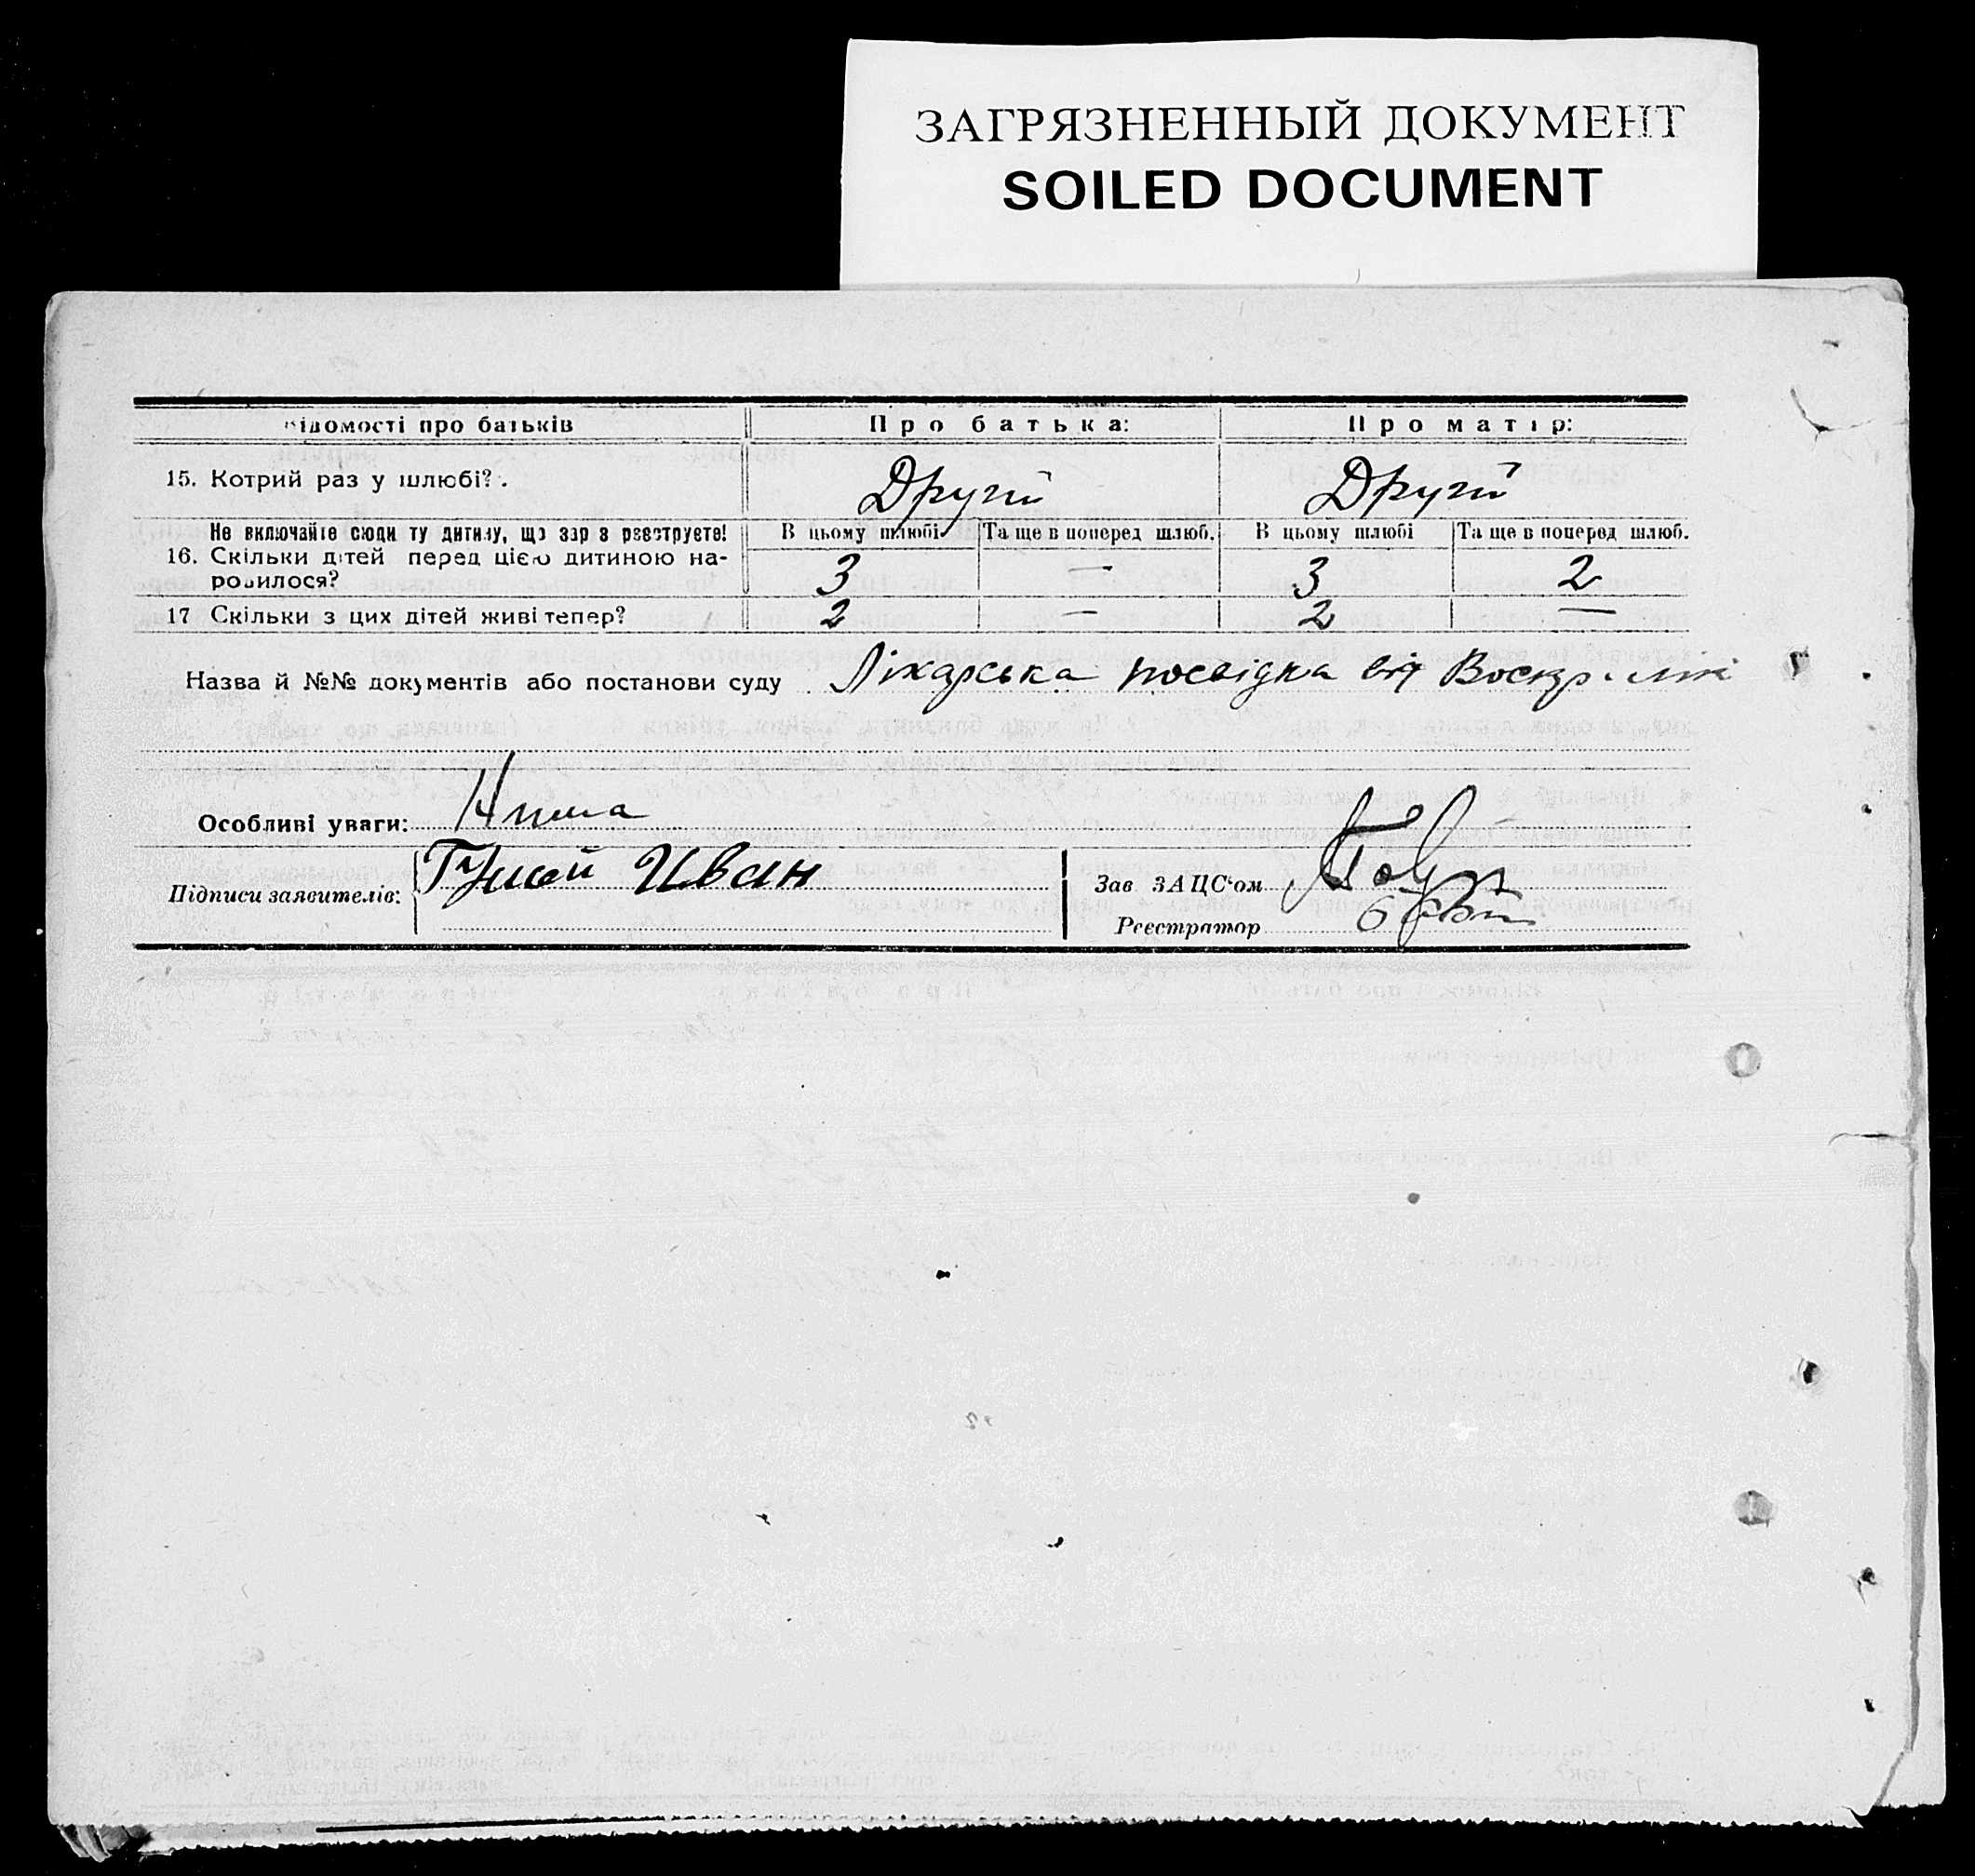 ЗАГРЯЗНЕННЫЙ ДОКУМЕНТ
SOILED DOCUMENT
Відомості про батьків Про батька: Про матір:
15. Котрий раз у шлюбі? Другий Другий
Не включайте сюди ту дитину, що зараз реєструєте! В цьому шлюбі Та ще в поперед шлюб. В цьому шлюбі Та ще в поперед шлюб.
16. Скільки дітей перед цією дитиною на-
родилося? 3 — 3 2
17 Скільки з цих дітей живі тепер? 2 — 2 —
Назва й №№ документів або постанови суду Лікарська посвідка від
Особливі уваги: Нема
Підписи заявителів: Иван Зав ЗАЦС'ом
Реєстратор